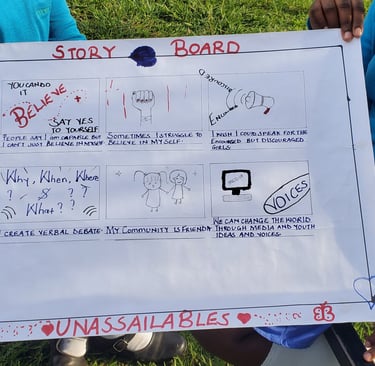 STORY BOARD
YOU CAN DO
IT
BELIEVE
SAY YES
TO YOURSELF
PEOPLE SAY I AM CAPABLE BUT
I CAN'T JUST BELIEVE IN MYSELF
SOMETIMES I STRUGGLE TO
BELIEVE IN MYSELF.
I WISH I COULD SPEAK FOR THE
ENGAGED BUT DISCOURAGED
GIRLS
Why, When, Where
? & ? ?
What??
CREATE VERBAL DEBATE
MY COMMUNITY IS FRIEND
VOICES
WE CAN CHANGE THE WORLD
THROUGH MEDIA AND YOUTH
IDEAS AND VOICES.
UNASSAILABLES